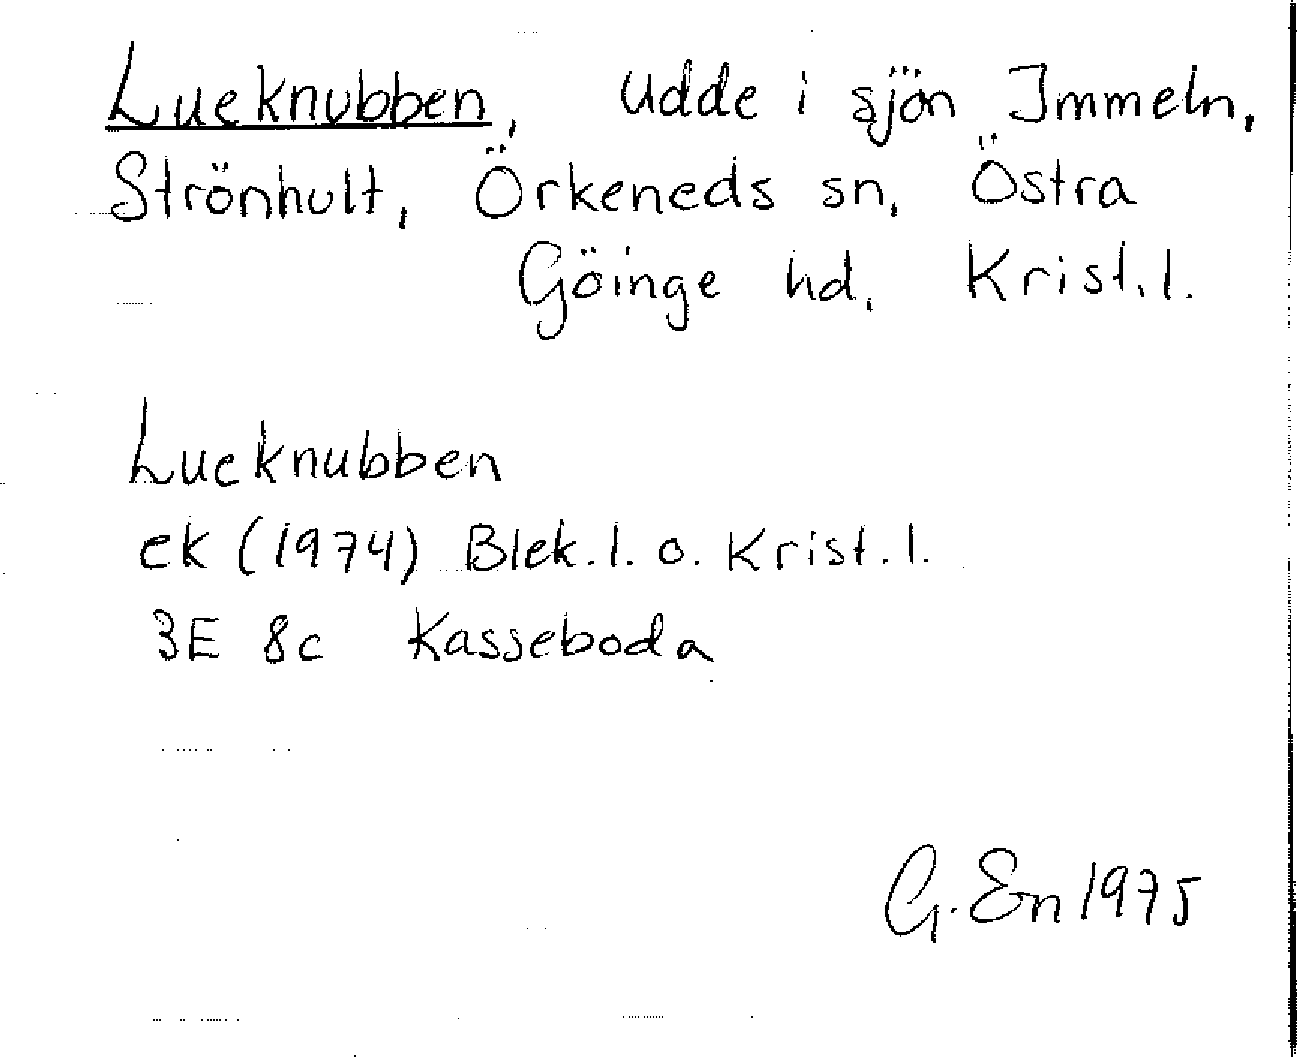 Lucknubben, Udde i sjön Immeln,
Strönhult, Örkeneds sn, Östra
Göinge hd, Krist. l.
Lucknubben
ek (1974) Blek. l. o. Krist. l.
3E 8c Kasseboda
G. En 1975